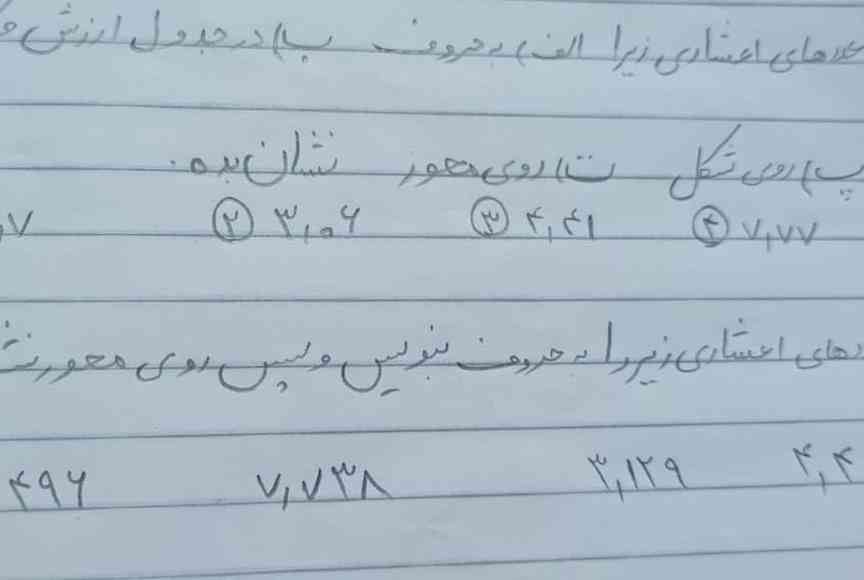 عددهای اعشاری زیر را الف) به حروف ب) در جدول ارزش
پ) روی شکل ت) روی محور نشان بده.
۷ ② ۳,۰۶ ③ ۴,۴۱ ④ ۷,۷۷
دهای اعشاری زیر را به حروف بنویس و سپس روی محور
۴۹۶ ۷,۷۳۸ ۳,۱۲۹ ۴,۴